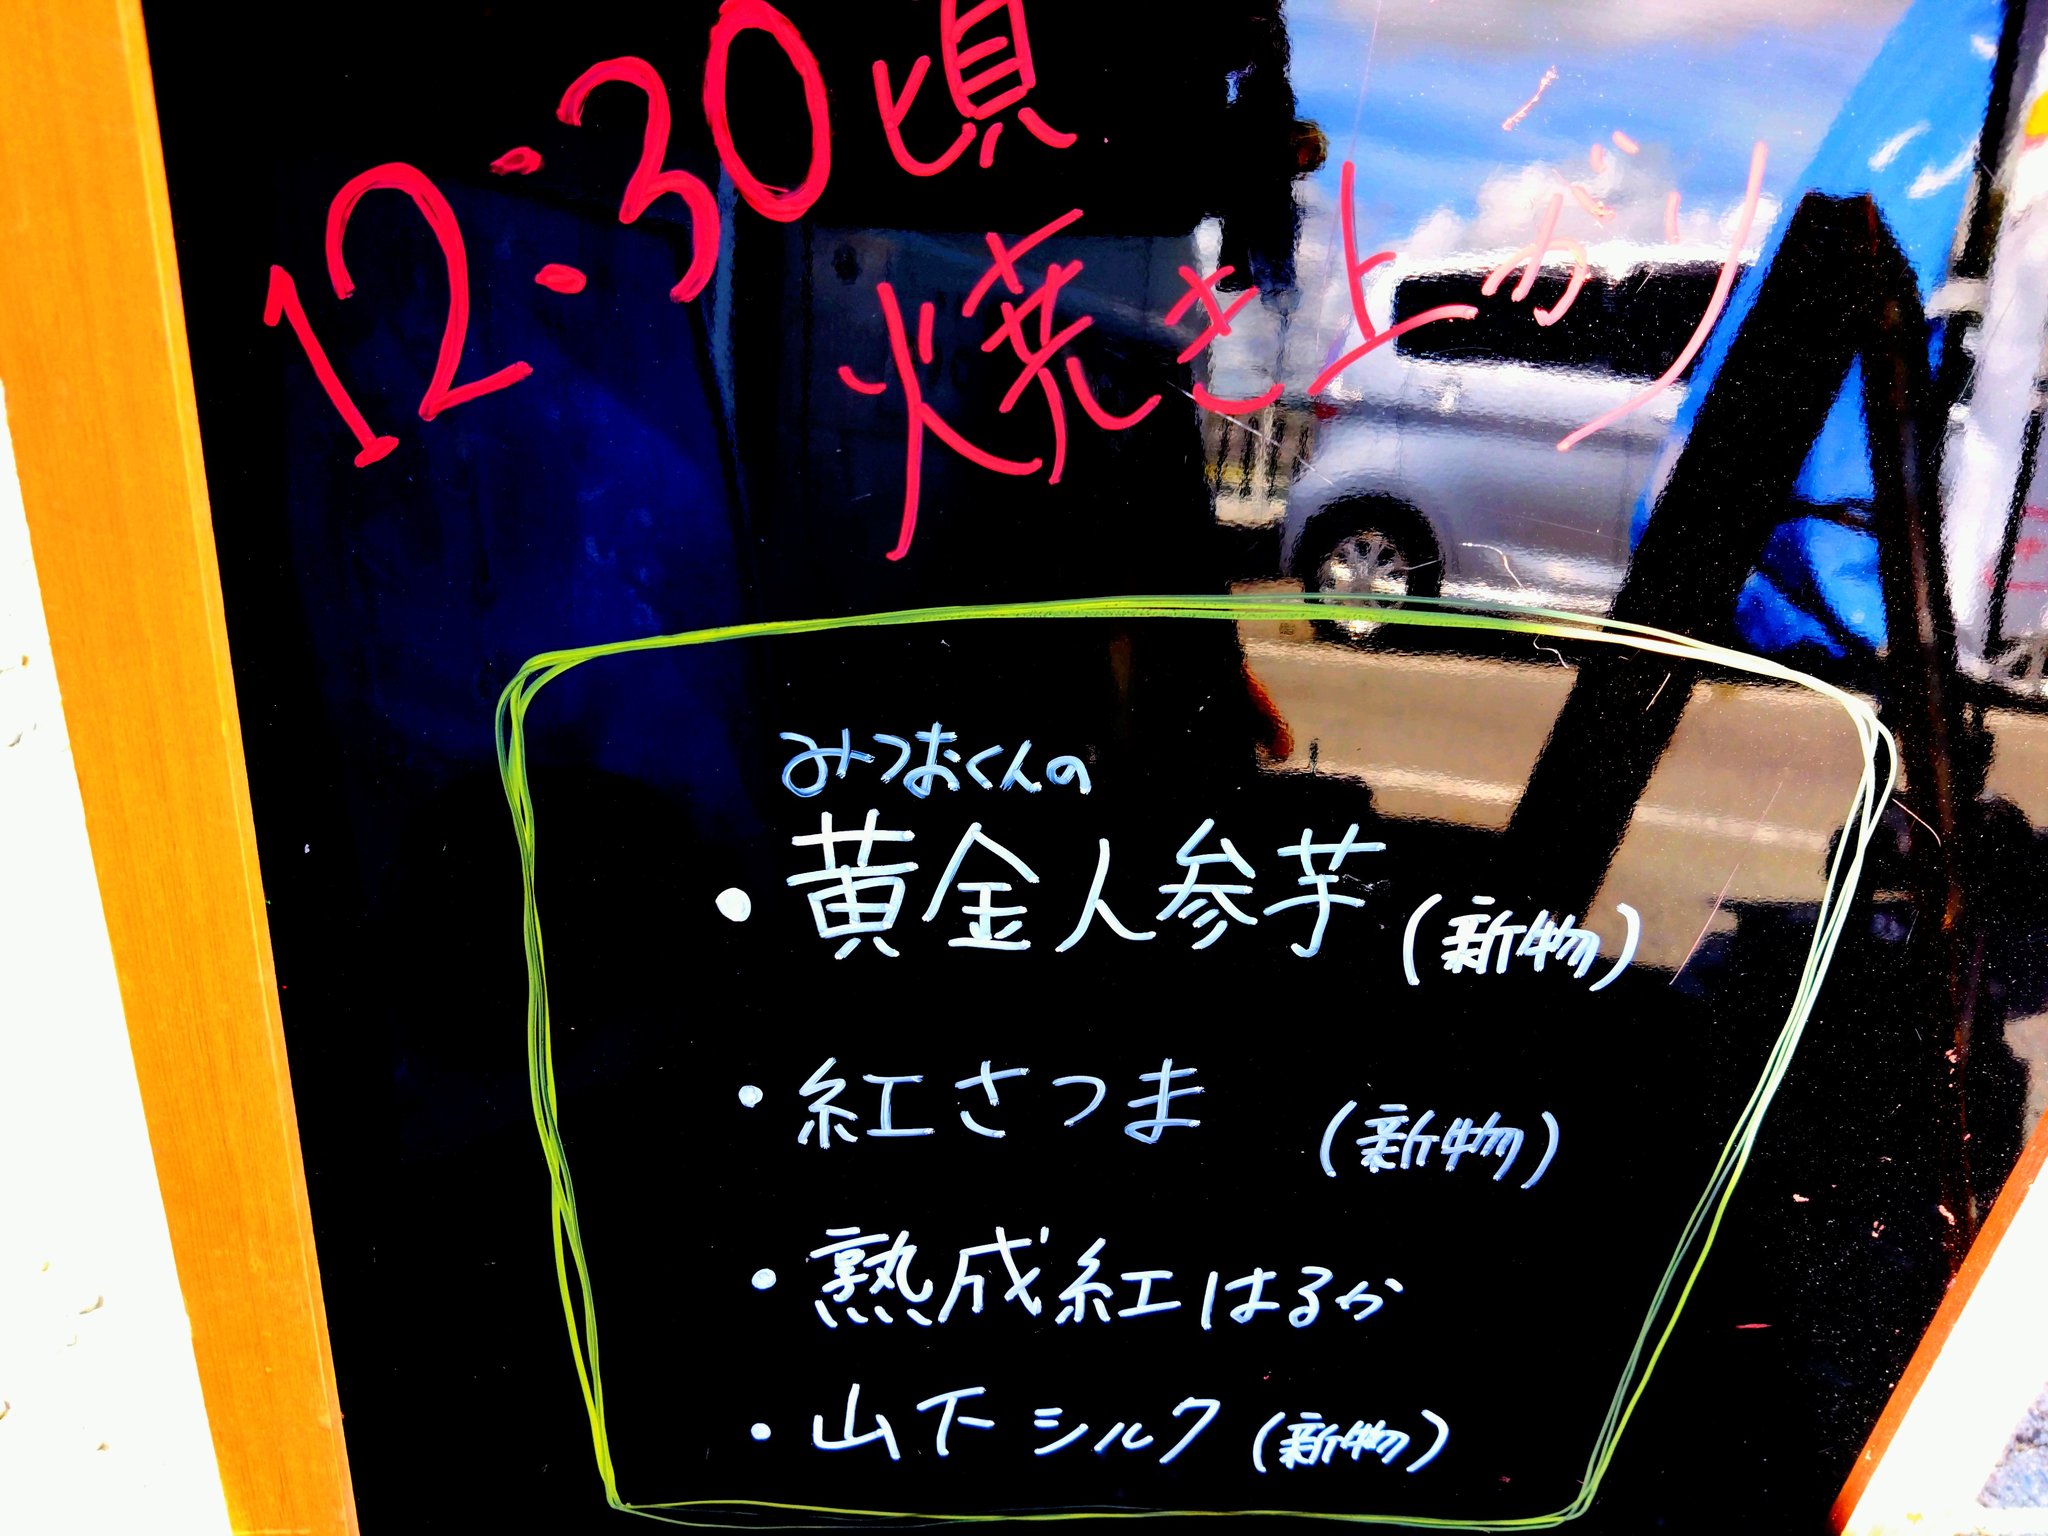 12:30頃
焼き上がり
みつおくんの
・黄金人参芋(新物)
・紅さつま(新物)
・熟成紅はるか
・山下シルク(新物)